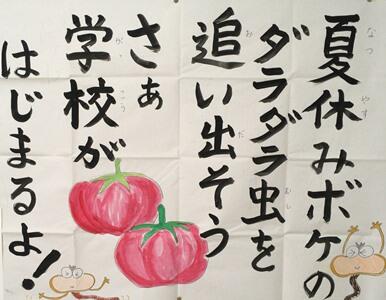 夏休みボケの
ダラダラ虫を
追い出そう
さぁ
学校が
はじまるよ!